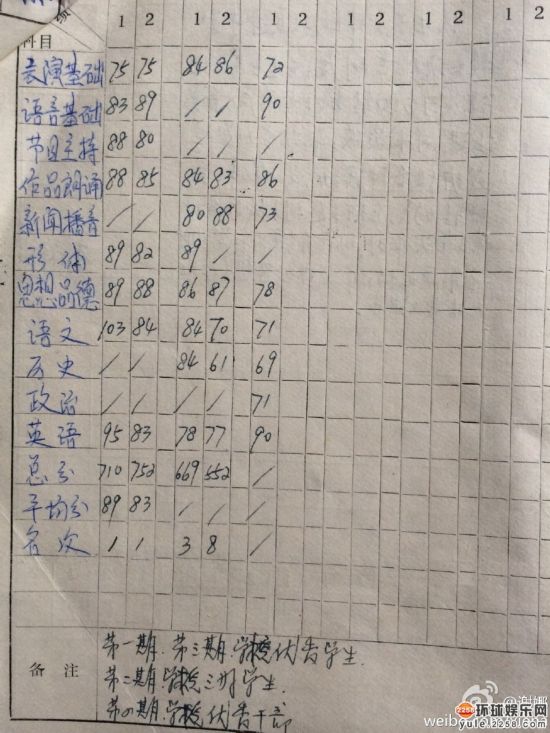 绩 1 2 1 2 1 2 1 2 1 2 1 2
科目
表演基础 75 75 84 86 72
语音基础 83 89 / / 90
节目主持 88 80 / / /
作品朗诵 88 85 84 83 86
新闻播音 / / 80 88 73
形体 89 82 89 / /
思想品德 89 88 86 87 78
语文 103 84 84 70 71
历史 / / 84 61 69
政治 / / / / 71
英语 95 83 78 77 90
总分 710 752 669 552 /
平均分 89 83 / / /
名次 1 1 3 8 /
备注
第一期、第三期:学校优秀学生.
第二期:学校三好学生
第四期:学校优秀干部
@谢娜
weibo.com/xiena
2258.com 环球娱乐网
yule.2258.com